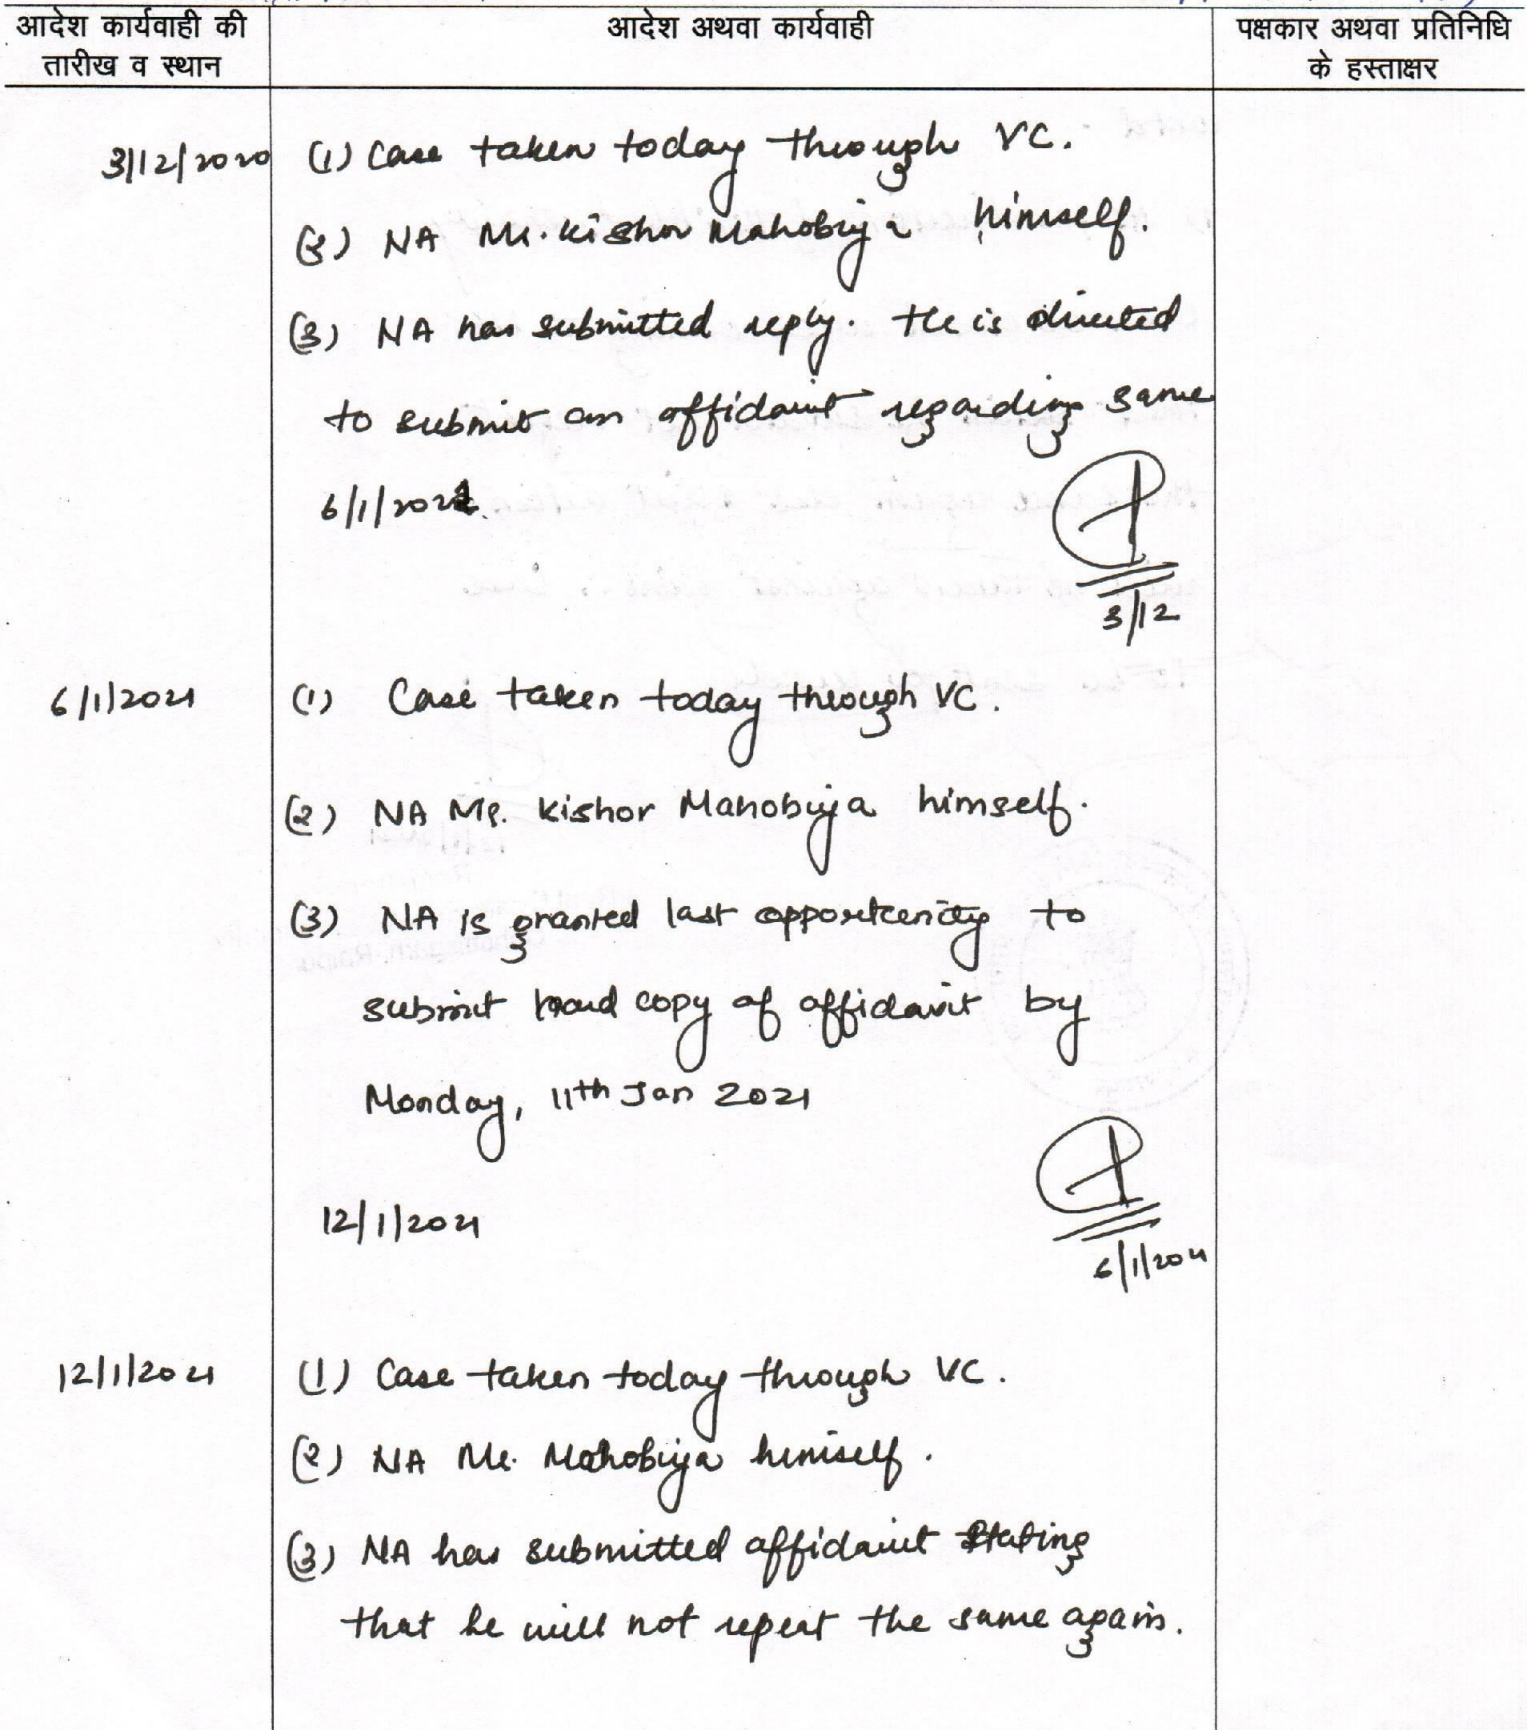 आदेश कार्यवाही की
तारीख व स्थान
आदेश अथवा कार्यवाही
पक्षकार अथवा प्रतिनिधि
के हस्ताक्षर
3/12/2020 (1) Case taken today through VC.
(2) NA Mr. Kishor Mahobiya himself.
(3) NA has submitted reply. He is directed
to submit an affidavit regarding same
6/1/2021.
3/12
6/1/2021 (1) Case taken today through VC.
(2) NA Mr. Kishor Mahobiya himself.
(3) NA is granted last opportunity to
submit hard copy of affidavit by
Monday, 11th Jan 2021
12/1/2021
6/1/2021
12/1/2021 (1) Case taken today through VC.
(2) NA Mr. Mahobiya himself.
(3) NA has submitted affidavit stating
that he will not repeat the same again.